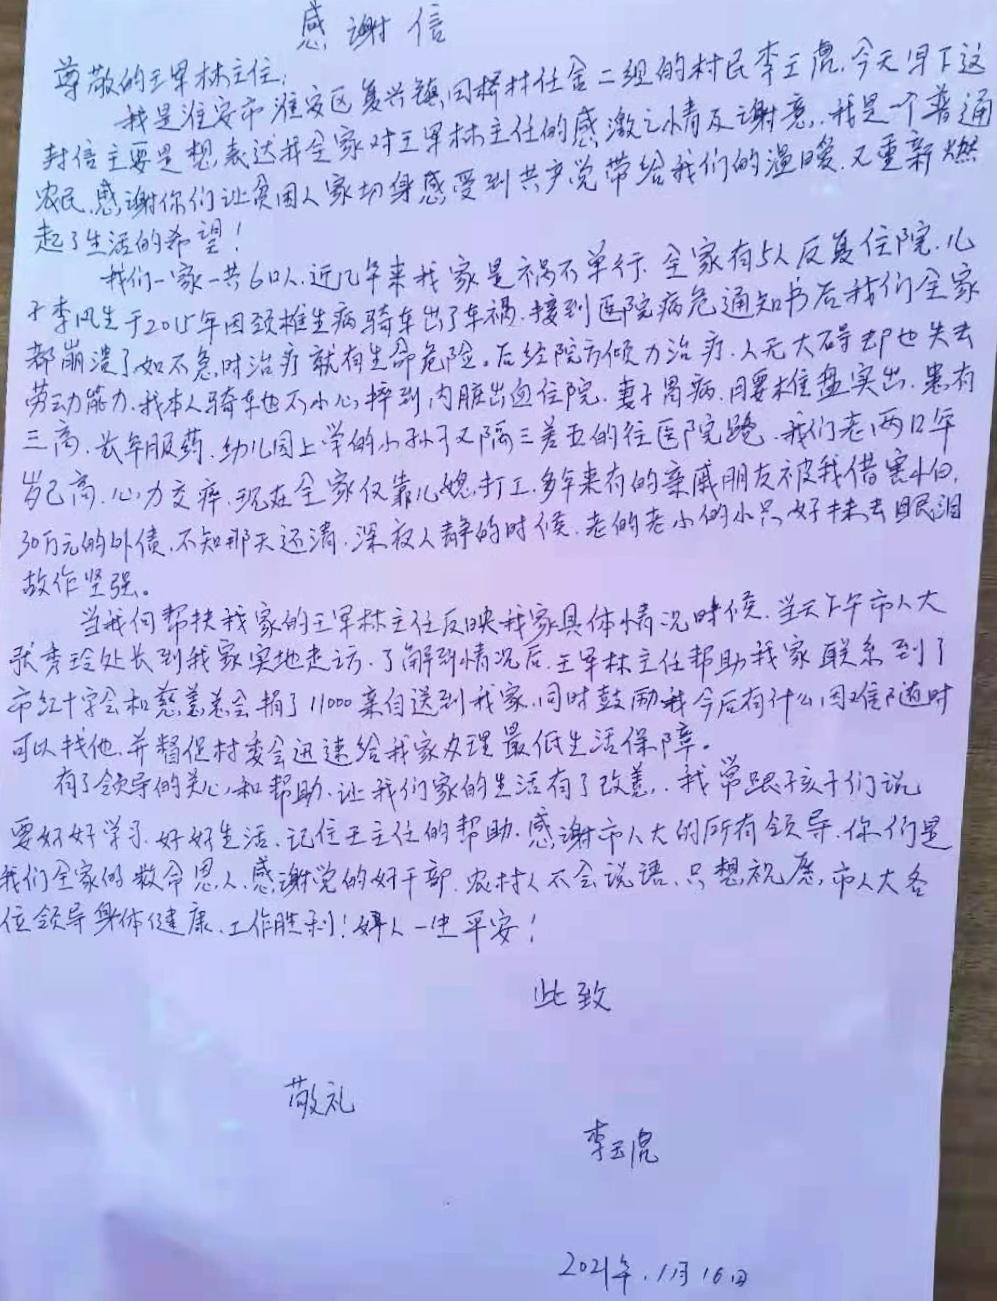 感谢信
尊敬的王军林主任:
我是淮安市淮安区复兴镇田桥村任舍二组的村民李玉虎.今天写下这
封信主要是想表达我全家对王军林主任的感激之情及谢意.我是一个普通
农民.感谢你们让贫困人家切身感受到共产党带给我们的温暖.又重新燃
起了生活的希望!
我们一家一共6口人.近几年来我家是祸不单行.全家有5人反复住院.儿
子李风生于2015年因颈椎生病骑车出了车祸.接到医院病危通知书后我们全家
都崩溃了如不急时治疗就有生命危险。后经院方倾力治疗.人无大碍却也失去
劳动能力.我本人骑车也不小心摔到内脏出血住院.妻子胃病.腰椎盘突出.患有
三高.长年服药.幼儿园上学的小孙子又隔三差五的往医院跑.我们老两口年
岁已高.心力交瘁.现在全家仅靠儿媳打工.多年来有的亲戚朋友被我借害怕.
30万元的外债.不知那天还清.深夜人静的时候.老的老小的小只好抹去眼泪
故作坚强。
当我向帮扶我家的王军林主任反映我家具体情况时候.当天下午市人大
张秀玲处长到我家实地走访.了解到情况后.王军林主任帮助我家联系到了
市红十字会和慈善总会捐了11000亲自送到我家.同时鼓励我今后有什么困难随时
可以找他.并督促村委会迅速给我家办理最低生活保障。
有了领导的关心和帮助.让我们家的生活有了改善.我常跟孩子们说
要好好学习.好好生活.记住王主任的帮助.感谢市人大的所有领导.你们是
我们全家的救命恩人.感谢党的好干部.农村人不会说话.只想祝愿.市人大各
位领导身体健康.工作胜利!好人一生平安!
此致
敬礼
李玉虎
2021年.11月16日